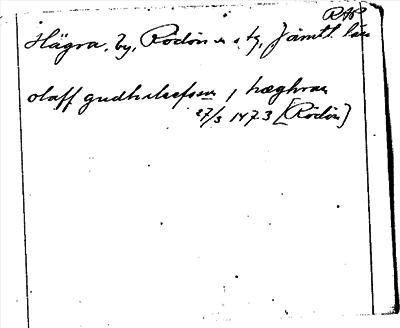 RAP
Hägra, by, Rödöns s:n, Jämtl. län
olaff gudheleefson i hæghraa
27/3 1473 [Rödön]